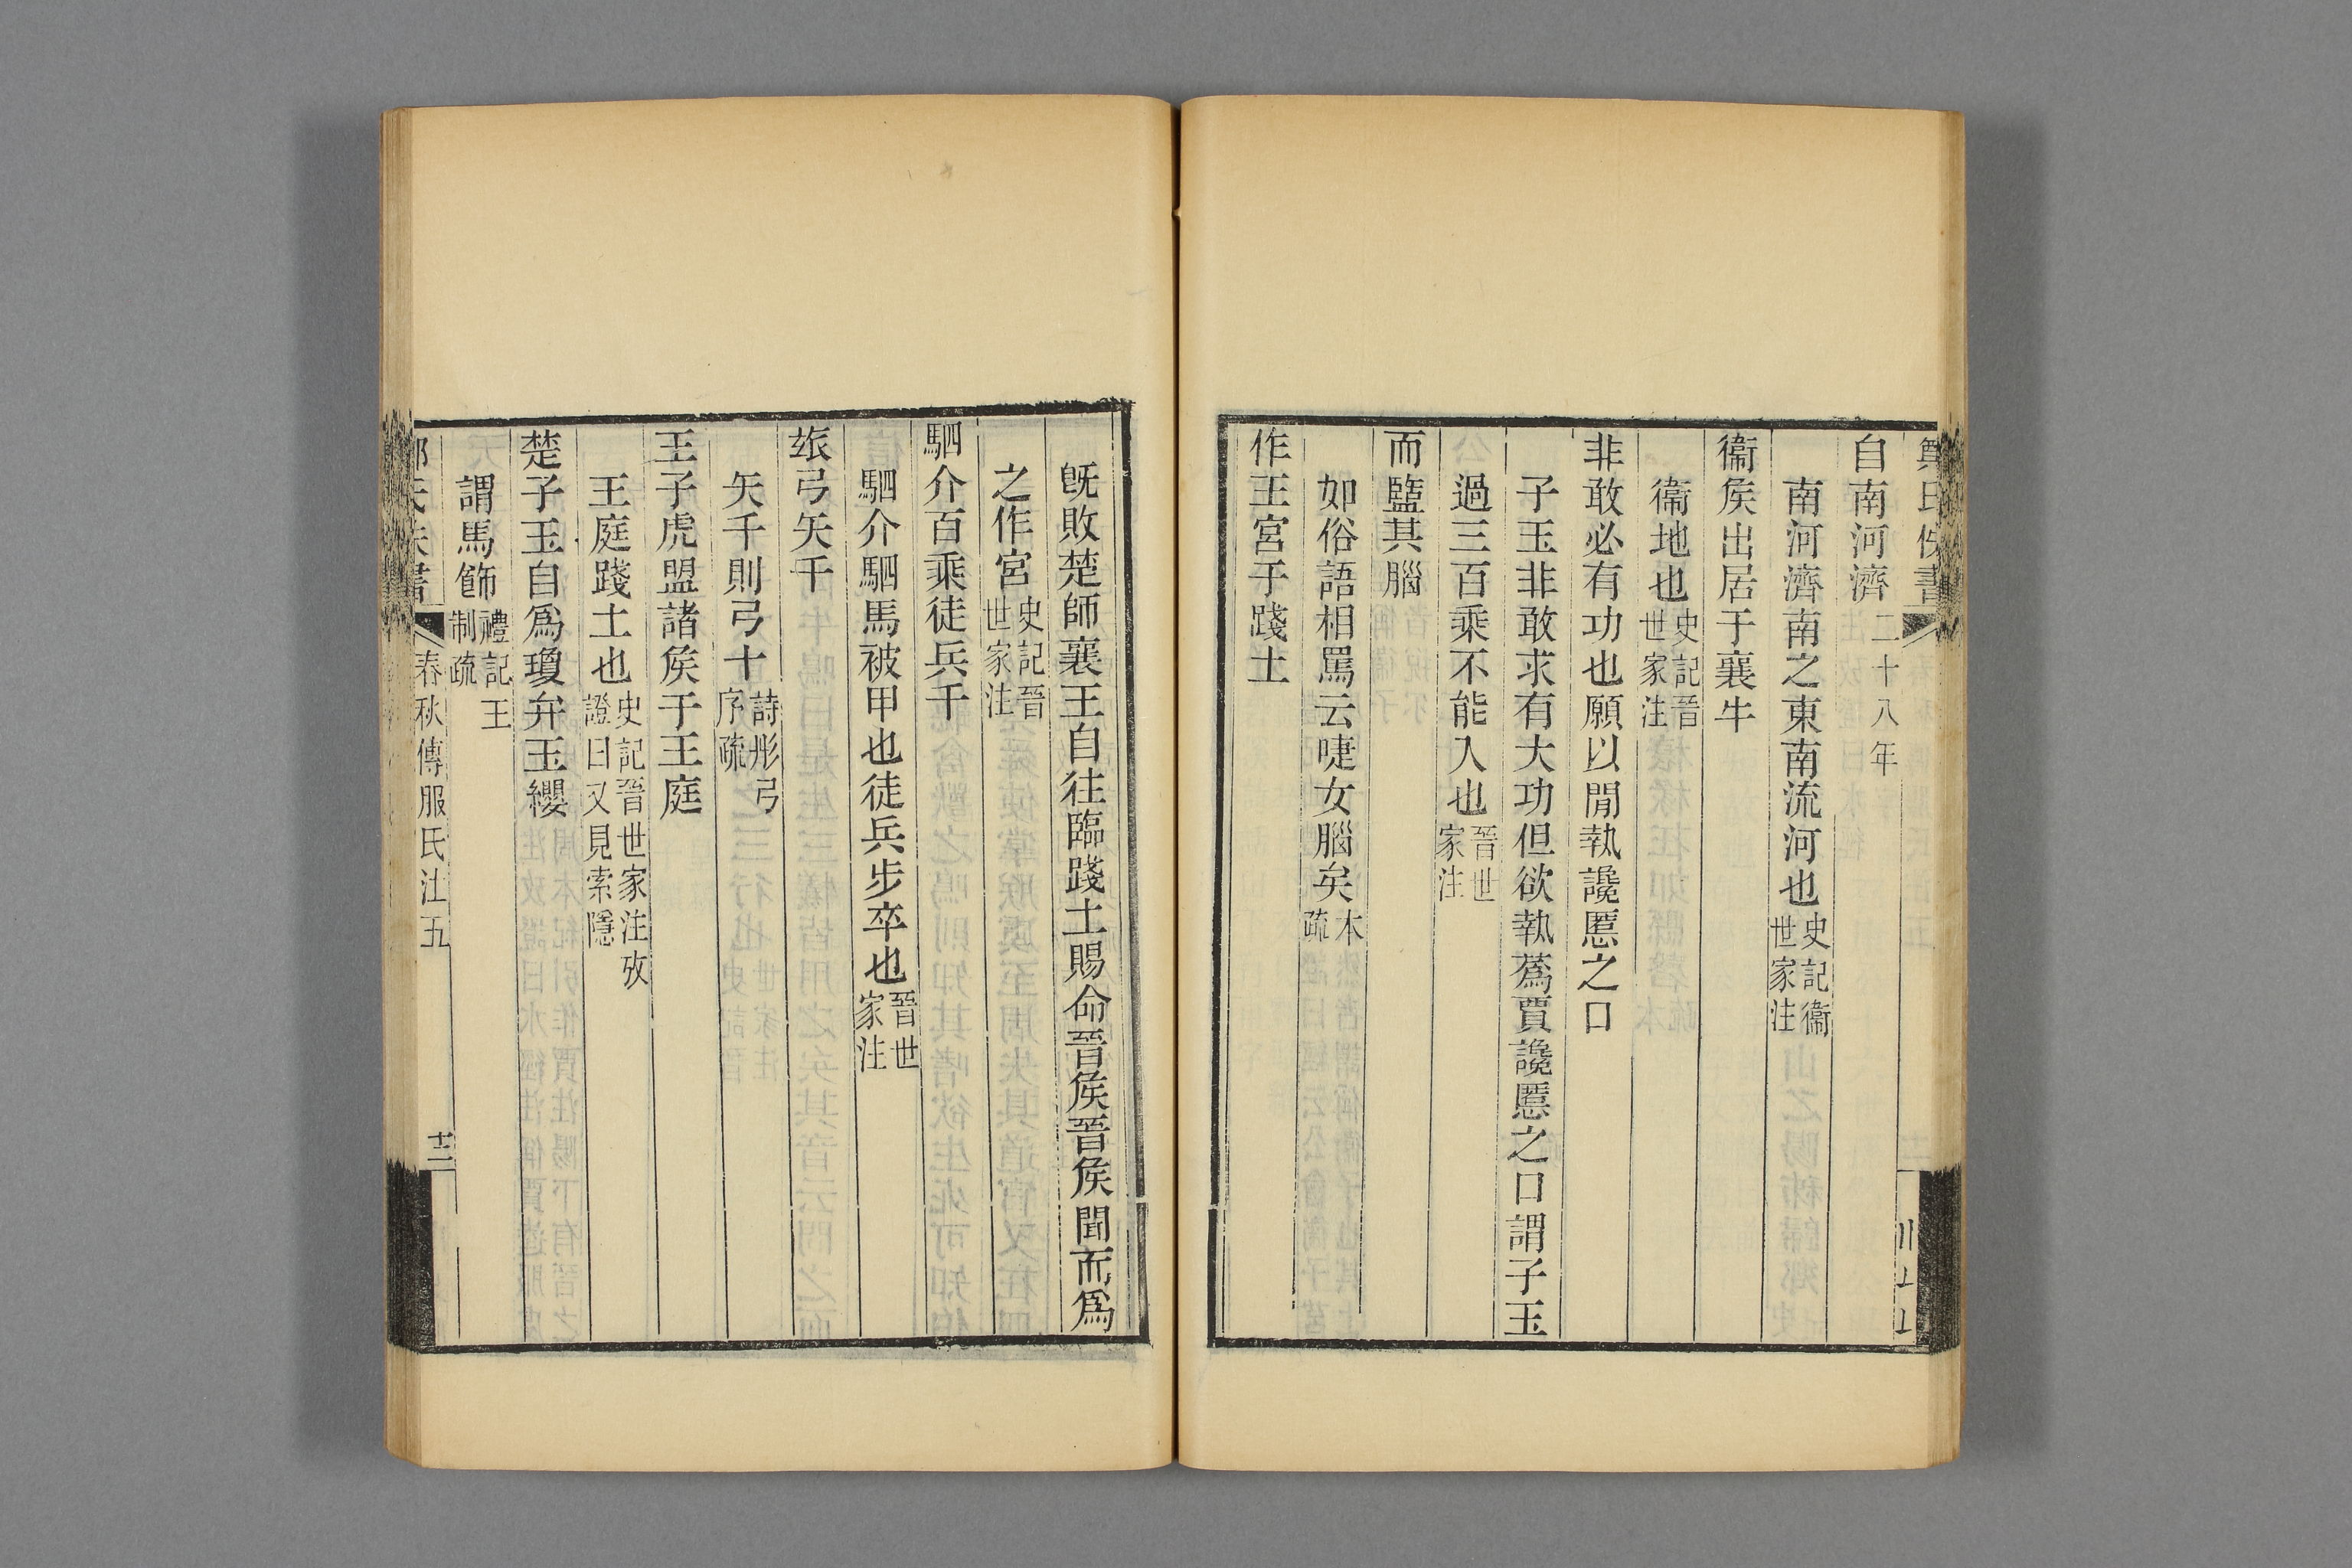 自南河濟二十八年
南河濟南之東南流河也史記衞世家注
衞矦出居于襄牛
衞地也史記晉世家注
非敢必有功也願以閒執讒慝之口
子玉非敢求有大功但欲執蔿賈讒慝之口謂子玉
過三百乘不能入也晉世家注
而盬其腦
如俗語相罵云啑女腦矣本疏
作王宮于踐土
既敗楚師襄王自往臨踐土賜命晉矦晉矦聞而爲
之作宮史記晉世家注
駟介百乘徒兵千
駟介駟馬被甲也徒兵步卒也晉世家注
玈弓矢千
矢千則弓十詩彤弓序疏
王子虎盟諸矦于王庭
王庭踐土也史記晉世家注攷證曰又見索隱
楚子玉自爲瓊弁玉纓
謂馬飾禮記王制疏
春秋傳服氏注五 十二